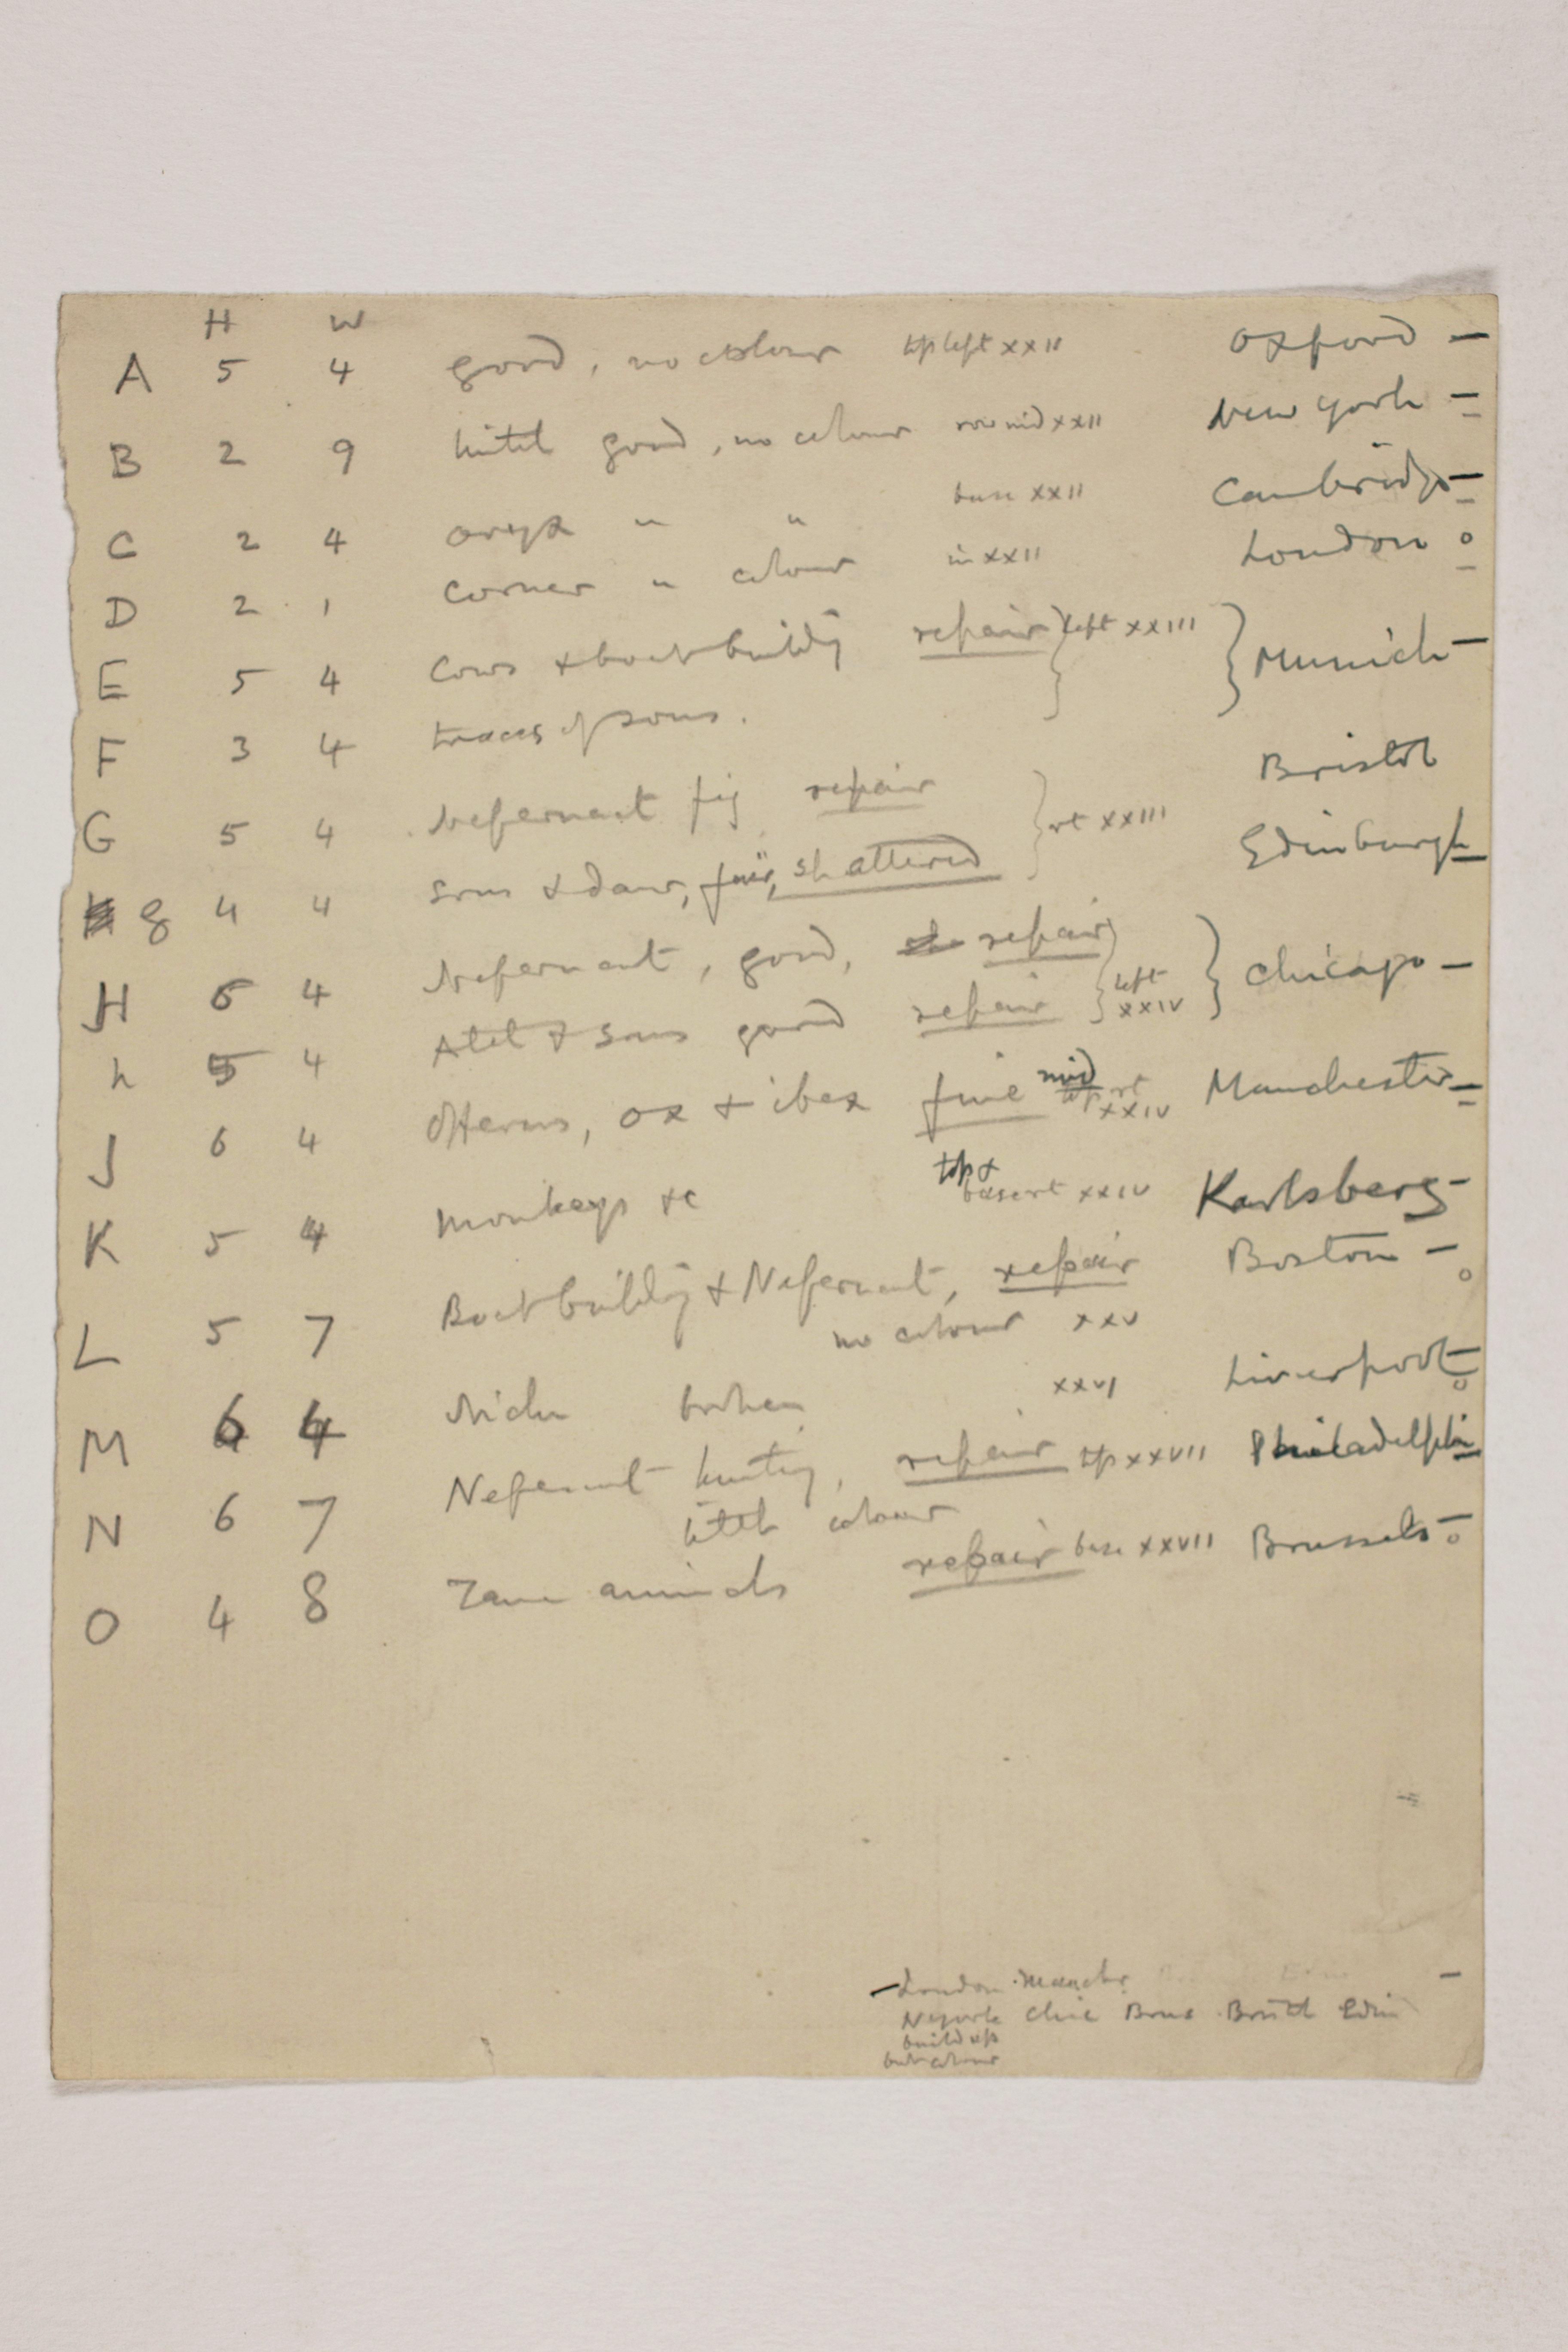 H W
A 5 4 good, no colour top left XXII Oxford –
B 2 9 lintel good, no colour row mid XXII New York =
C 2 4 oryx " " base XXII Cambridge =
D 2 1 corner " colour in XXII London o
E 5 4 cows & boatbuilding repair } left XXIII } Munich –
F 3 4 traces of sons.
G 5 4 Nefermaat fig repair } rt XXIII Bristol
g 4 4 sons & daur, fair, shattered Edinburgh –
H 6 4 Nefermaat, good, repair } left XXIV } Chicago –
h 5 4 Atet & sons good repair
J 6 4 Offerers, ox & ibex fine mid rt XXIV Manchester =
K 5 4 monkeys &c top & base rt XXIV Karlsberg –
L 5 7 Boatbuilding & Nefermaat, repair Boston – o
no colour XXV
M 6 4 Niche broken XXVI Liverpool – o
N 6 7 Nefermaat hunting, repair top XXVII Philadelphia
little colour
O 4 8 Tame animals repair base XXVII Brussels – o
– London . Manchr –
N York Chic Brus Bristl Edin
build up
but colour